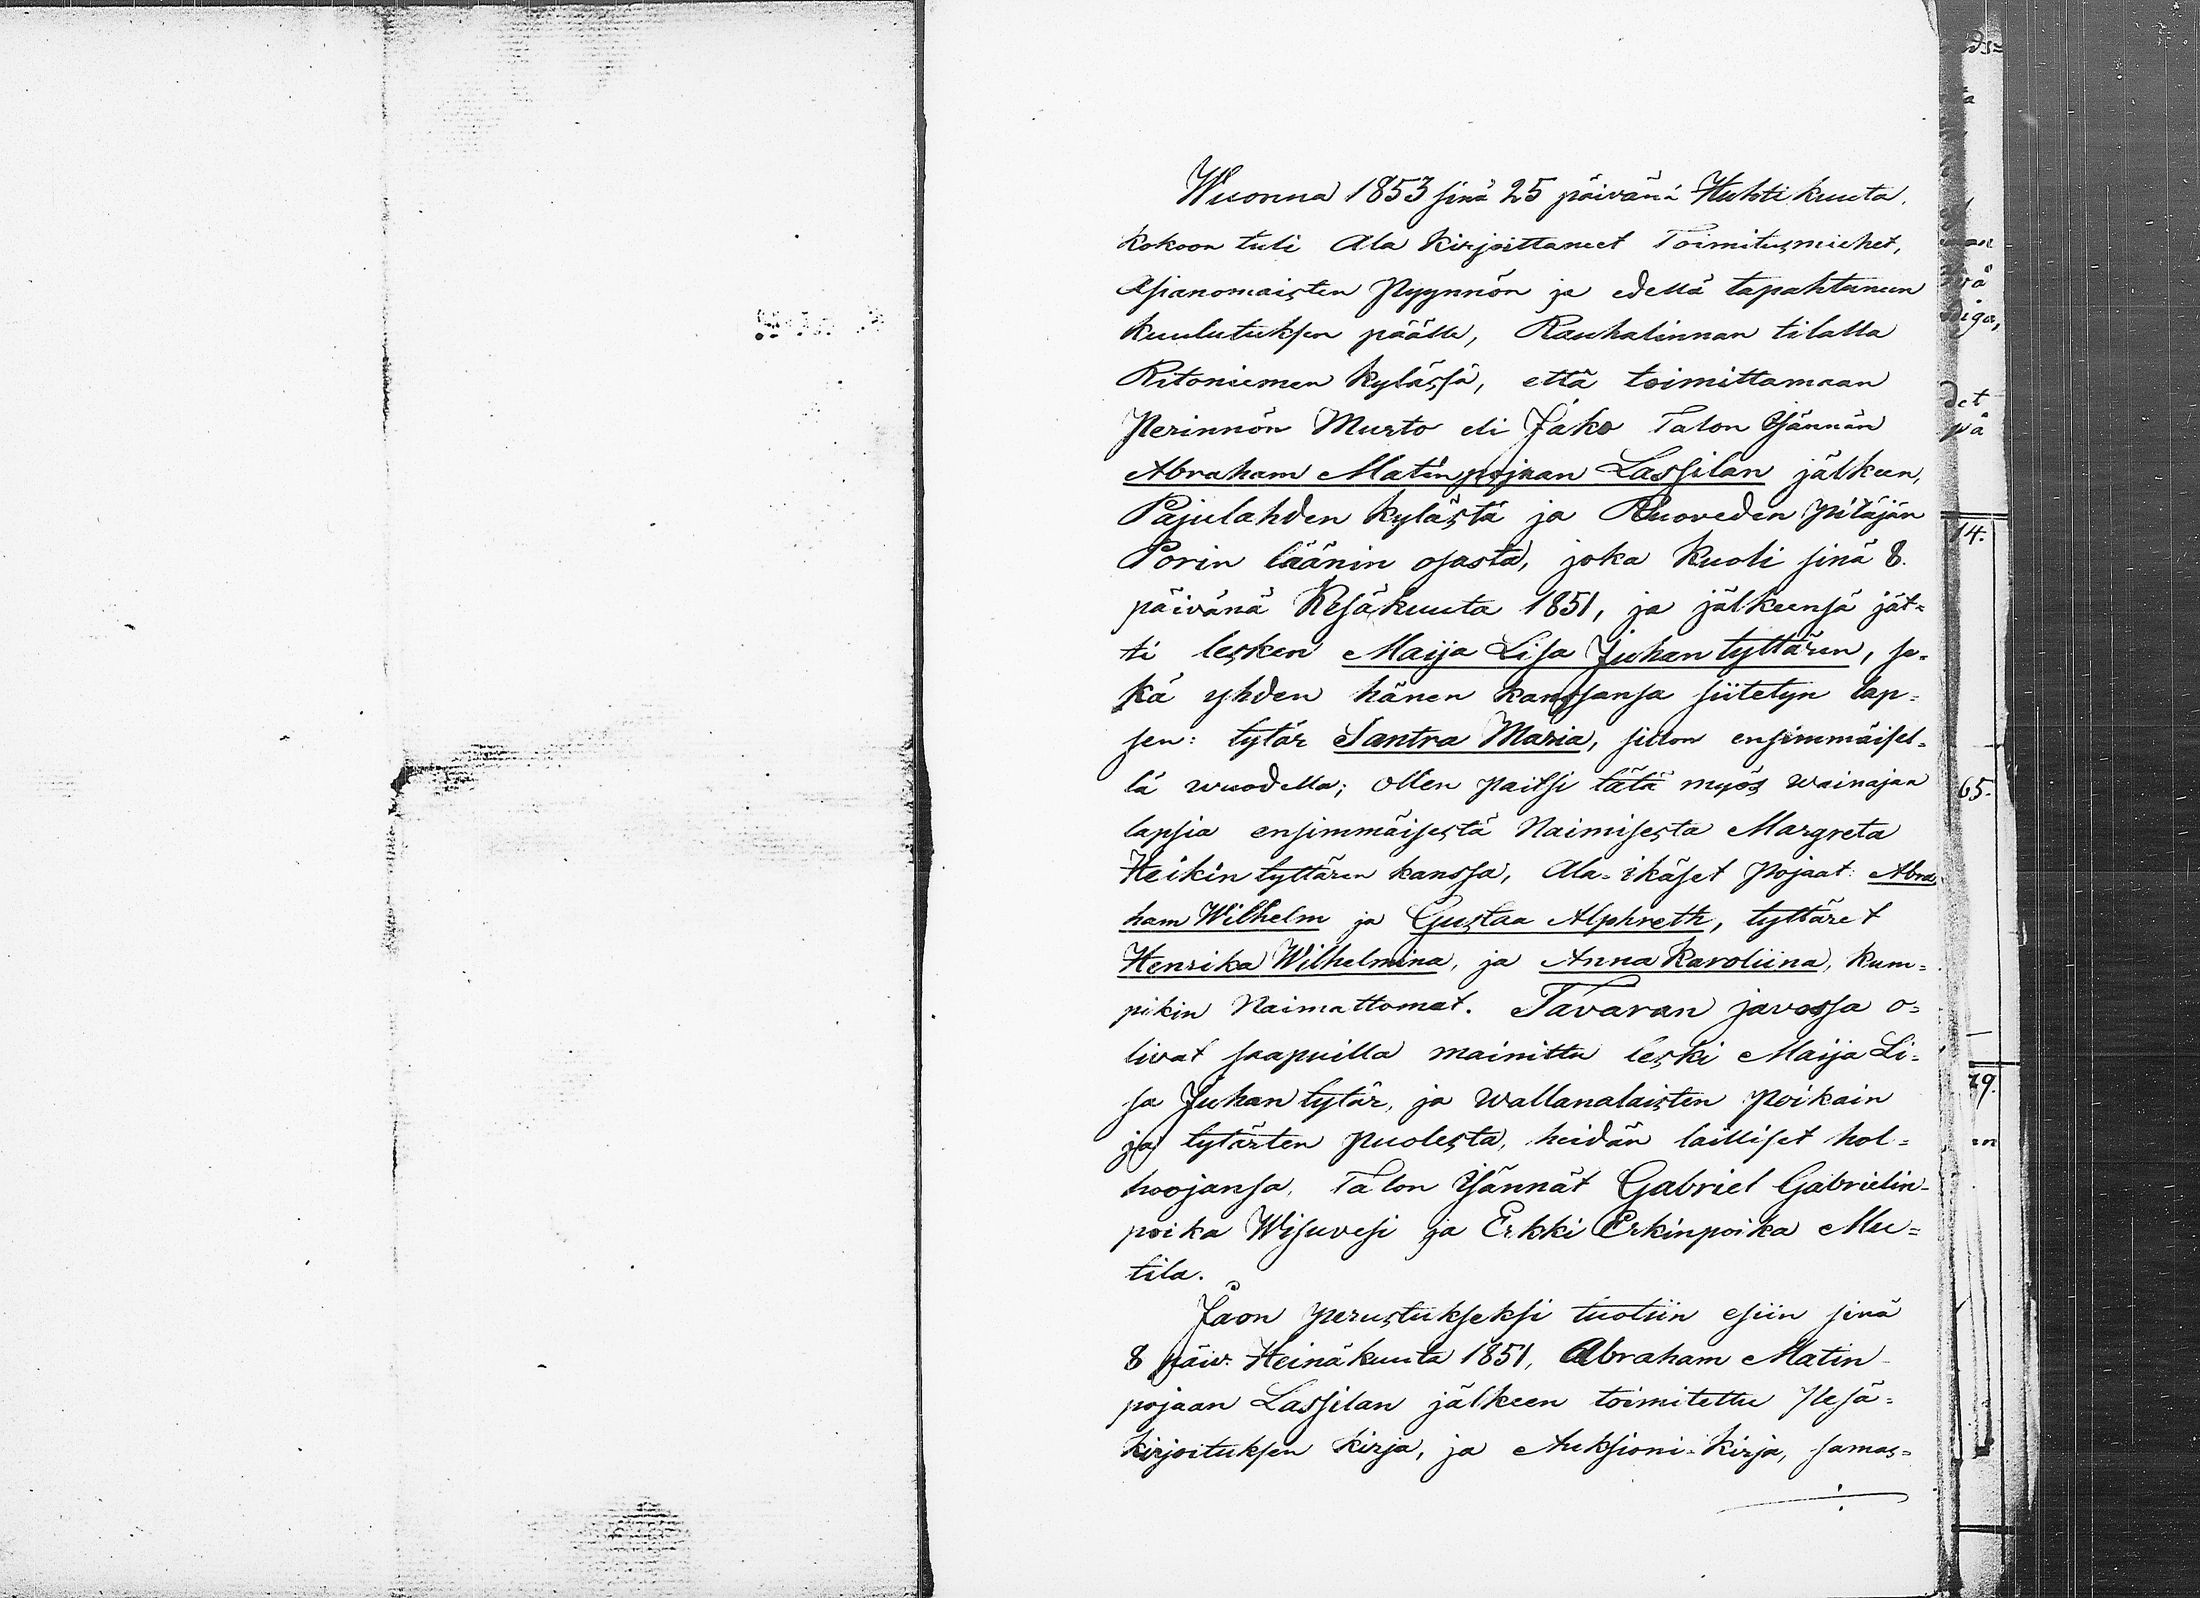 Wuonna 1853 sinä 25 päivänä Huhti kuuta.
kokoon tuli Ala kirjoittaneet Toimitusmiehet,
Asianomaisten Pyynnön ja edellä tapahtuneen
kuulutuksen päälle, Rauhalinnan tilalla
Ritoniemen kylässä, että toimittamaan
Perinnön Murto eli Jako Talon Isännän
Abraham Matin pojaan Lassilan jälkeen,
Pajulahden kylästä ja Ruoveden Pitäjän
Porin läänin osasta, joka kuoli sinä 8.
päivänä Kesäkuuta 1851, ja jälkeensä jät=
ti lesken Maija Lisa Juhan tyttären, se=
kä yhden hänen kanssansa siitetyn lap=
sen: tytär Santra Maria, silloin ensimmäisel=
lä wuodella; ollen paitsi tätä myös wainajan
lapsia ensimmäisestä Naimisesta Margreta
Heikin tyttären kanssa, Ala-ikäset Pojaat: Abra
ham Wilhelm ja Gustaa Alphreth, tyttäret
Henrika Wilhelmina, ja Anna Karoliina, kum=
pikin Naimattomat. Tavaran javossa o=
livat saapuilla mainittu leski Maija Li=
sa Juhan tytär, ja wallanalaisten Poikain
ja tytärten puolesta, heidän lailliset hol=
hoojansa, Talon Isännät Gabriel Gabrielin=
poika Wisuvesi ja Erkki Erkinpoika Mu=
tila.
Jaon perustukseksi tuotiin esiin sinä
8 päiv. Heinäkuuta 1851, Abraham Matin
pojaan Lassilan jälkeen toimitettu Pesä=
kirjoituksen kirja, ja Auksioni-kirja, samas=
ds=
ta
diga,
det
på
14.
65.
29.
en